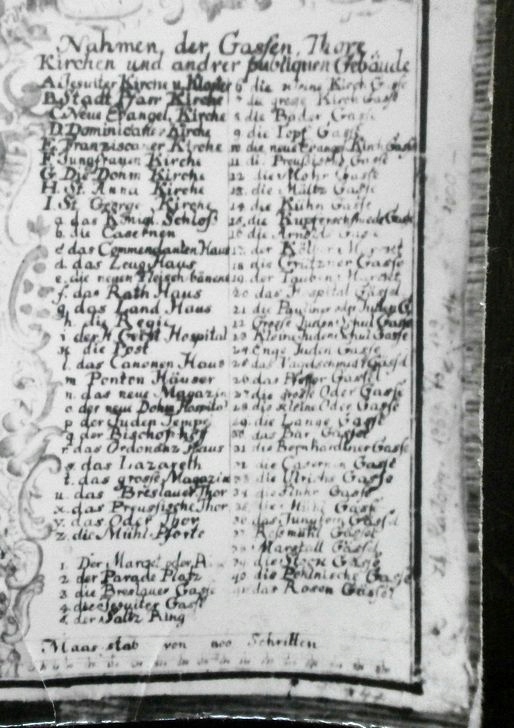 Nahmen der Gassen, Thore
Kirchen und andrer publiquen Gebäude
A. Jesuiter Kirche u. Kloster
B. Stadt Pfarr Kirche
C. Neue Evangel. Kirche
D. Dominicaner Kirche
E. Franziscaner Kirche
F. Jungfrauen Kirche
G. Die Dohm Kirche
H. St. Anna Kirche
I. St. George Kirche
a. das Königl. Schloß
b. die Casernen
c. das Commendanten Haus
d. das Zeug Haus
e. die neuen Fleisch bäncke
f. das Rath Haus
g. das Land Haus
h. die Regie
i. der H. Geist Hospital
k. die Post
l. das Canonen Haus
m. Ponton Häuser
n. das neue Magazin
o. der neue Dohm Hospital
p. der Juden Tempel
q. der Bischof hoff
r. das Ordonanz Haus
s. das Lazareth
t. das grosse Magazin
u. das Breslauer Thor
x. das Preussische Thor
y. das Oder Thor
z. die Mühl Pforte
1. Der Marckt oder
2. der Parade Platz
3. die Breslauer Gasse
4. die Jesuiter Gasse
5. der Saltz Ring
6. die Kirch Gasse
7. die grosse Kirch Gasse
8. die Bader Gasse
9. die Topf Gasse
10. die neue Evangel Kirch Gasse
11. di. Preußische Gasse
12. die Mohr Gasse
13. die Maltz Gasse
14. die Kühn Gasse
15. die Kupferschmiede Gasse
16. die Arnolds Gasse
17. der Marckt
18. die Grützner Gasse
19. der Tauben Marckt
20. das Hospital Gässel
21. die Pauliner oder Juden G
22. Grosse Juden Schul Gasse
23. Kleine Juden Schul Gasse
24. Enge Juden Gasse
25. das Vogelschmidt Gässel
26. das Pfeffer Gässel
27. die grosse Oder Gasse
28. die kleine Oder Gasse
29. die Lange Gasse
30. das Bär Gässel
31. die Bernhardiner Gasse
32. die Casernen Gasse
33. die Ulrichs Gasse
34. die Gasse
35. die Mühl Gasse
36. das Jungfern Gässel
37. Rossmühl Gässel
38. Marstall Gässel
39. die Stock Gasse
40. die Böhmische Gasse
41. das Rosen Gässel
Maas stab von Schritten